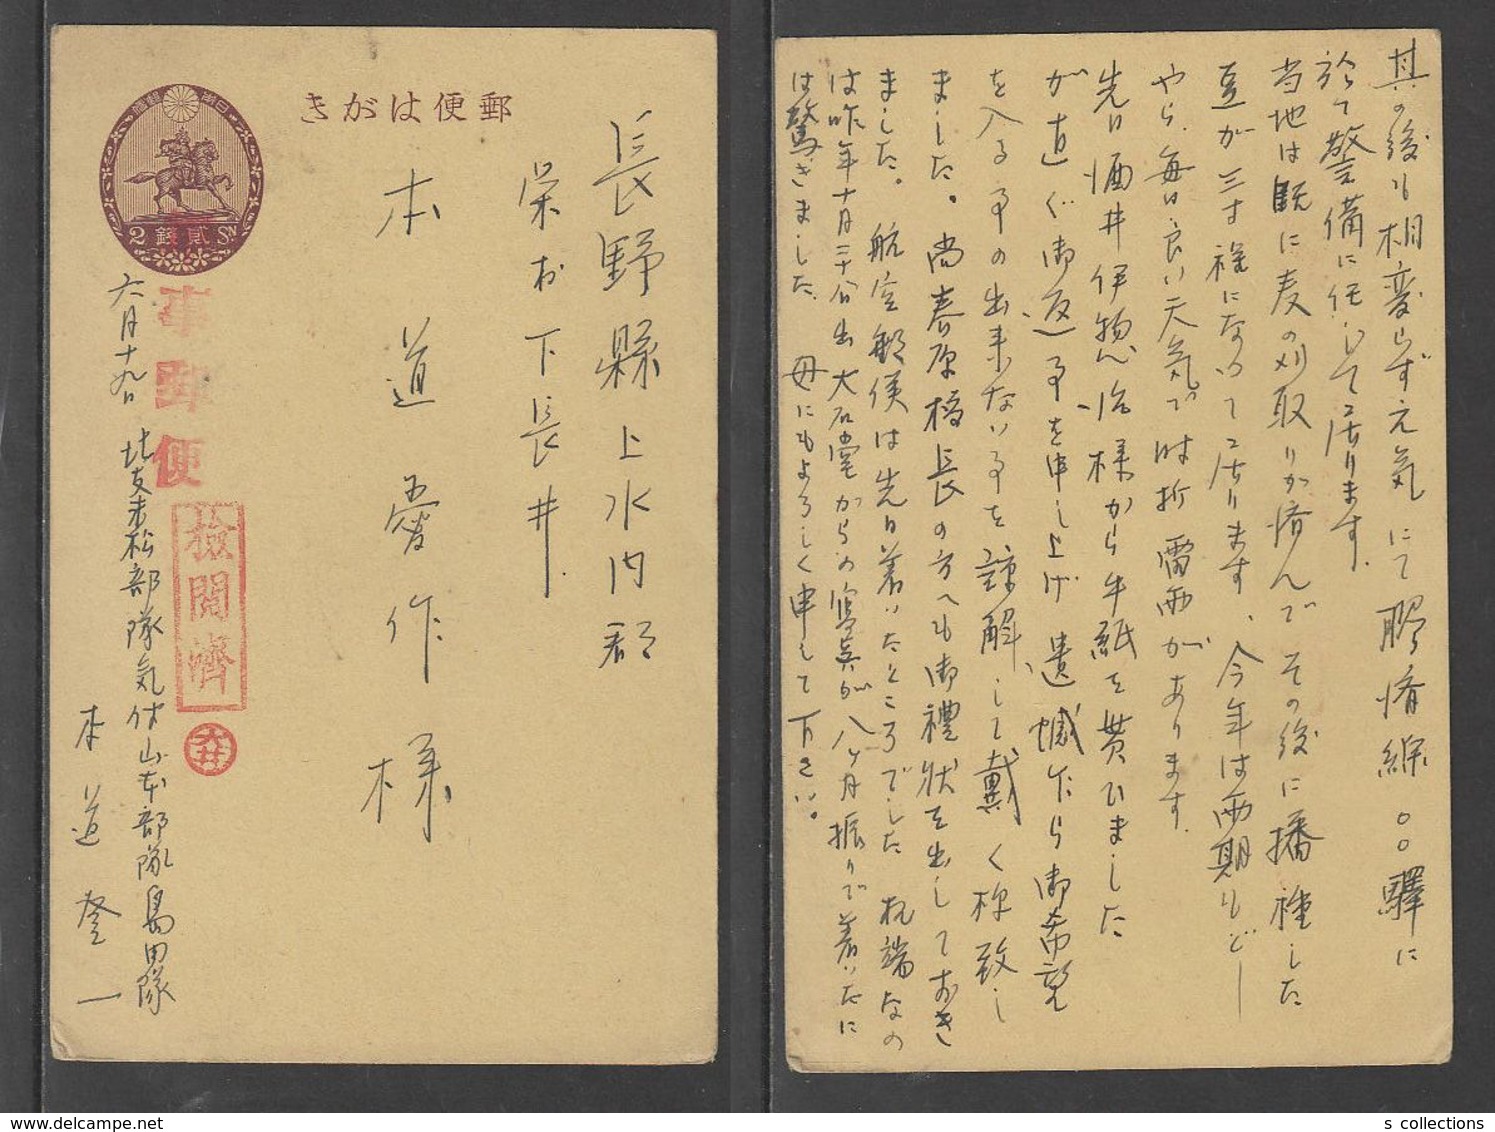 郵便はがき
大日本帝國郵便
2 貳錢 Sn
軍事郵便
檢閲濟
長野縣上水内郡
栄村下長井
本道愛作様
六月十九日
北支末松部隊気付山本部隊島田隊
本道登一
其の後も相変らず元気にて膠済線〇〇驛に
於て警備に任じて居ります。
当地は既に麦の刈取りが済んでその後に播種した
豆が三寸程になって居ります、今年は雨期もどー
やら、毎日良い天気で時折雷雨があります。
先日酒井伊惣治様から手紙を貰ひました
が直ぐ御返事を申し上げ遺憾ながら御希望
を入る事の出来ない事を諒解して戴く様致し
ました。尚春原校長の方へも御禮状を出しておき
ました。航空郵便は先日着いたところでした 極端なの
は昨年十月二十八日出大石堂からの寫真が八ヶ月振りで着いたに
は驚きました。 母にもよろしく申して下さい。
s collections